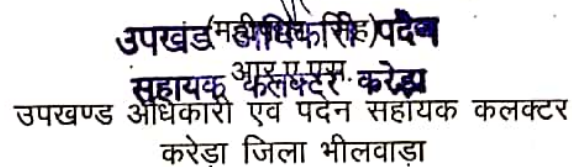 (महीपाल सिंह)
उपखंड अधिकारी पदेन
आर.ए.एस.
सहायक कलक्टर करेड़ा
उपखण्ड अधिकारी एवं पदेन सहायक कलक्टर
करेड़ा जिला भीलवाड़ा